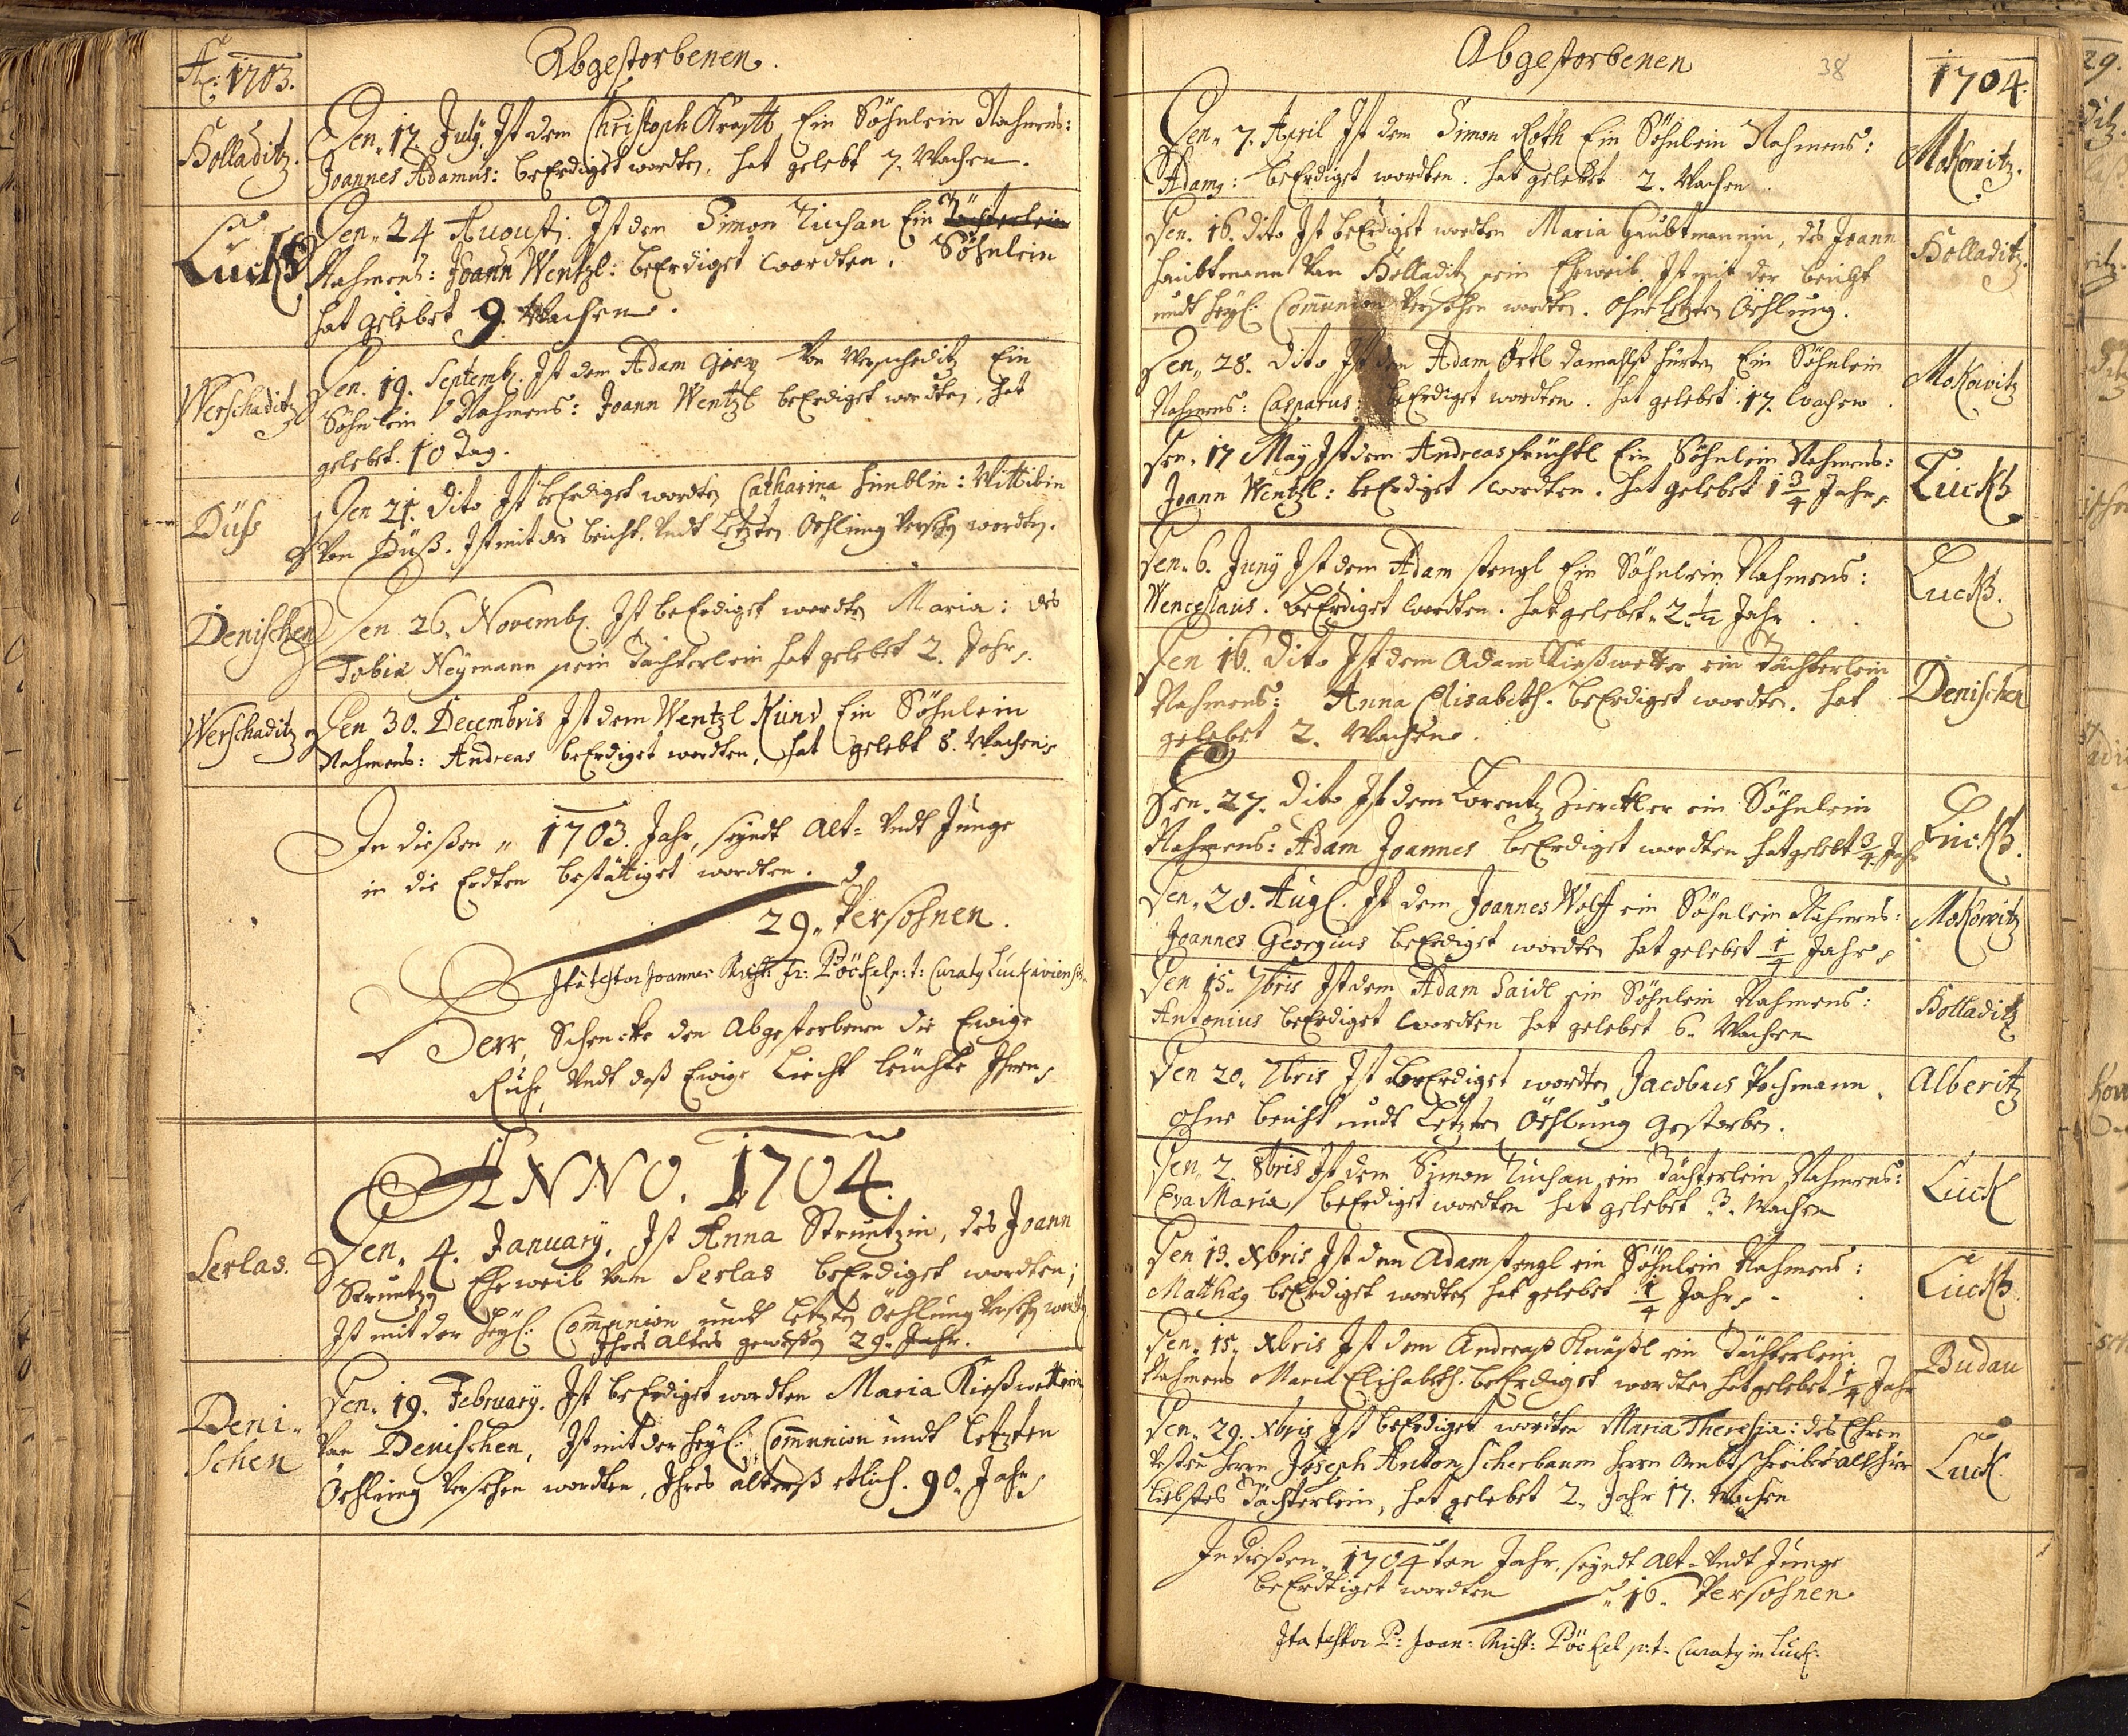 Aō: 1703.
Abgestorbenen.
Holladitz.
Den. 17. July. Ist dem Christoph Krafft Ein Söhnlein Nahmens:
Joannes Adamus: beErdiget wordten, hat gelebt 7. Wochen.
Luckß
Den. 24 Augusti. Ist dem Simon Tuchan Ein Töchterlein
Nahmens: Joann Wentzl: beErdiget wordten. Söhnlein
hat gelebet 9. Wochen.
Werschaditz
Den. 19. Septemb. Ist dem Adam Von Werscheditz Ein
Söhnlein Nahmens: Joann Wentzl beErdiget wordten, hat
gelebet. 10 Tag.
Düß
Den 21. dito Ist beErdiget wordten Catharina : Wittibin
Von Düß. Ist mit der beicht. Undt Letzten Oehlung versehen wordten.
Denischen
Den 26. Novemb. Ist beErdiget wordten Maria: des
Tobia Neymann sein Töchterlein hat gelebet 2. Jahr.
Werschaditz
Den 30. Decembris Ist dem Wentzl Kunß Ein Söhnlein
Nahmens: Andreas beErdiget wordten, hat gelebt 8. Wochen
In dießen 1703. Jahr, seyndt Alt= Undt Junge
in die Erdten bestättiget wordten.
29. Persohnen.
Ita testor Joannes Pöckel p: t: Curatg
Herr, Schencke den Abgestorbenen die Ewige
Ruhe, Undt daß Ewige Liecht leuchte Ihnen
ANNO. 1704.
Serlas.
Den. 4. January. Ist Anna Struntzin, des Joann
Struntz Eheweib Von Serlas beErdiget wordten;
Ist mit der heyl: Communion undt letzten Oehlung versehen wordten
Ihres Alters gewesen 29. Jahr.
Deni-
schen
Den. 19. February. Ist beErdiget wordten Maria Kießwetterin
Von Denischen, Ist mit der heyl: Communion undt letzten
Oehlung versehen wordten, Ihres alterß etlich. 90. Jahr
Abgestorbenen
38
1704.
Den. 7. April Ist dem Simon Roth Ein Söhnlein Nahmens:
Adamg: beErdiget wordten. hat gelebet 2. Wochen.
Mokowitz.
Den. 16. dito Ist beErdiget wordten Maria Haubtmannin, des Joann
Haubtmann Von Holladitz sein Eheweib. Ist mit der beicht
undt heyl: Communion versehen wordten. ohne letzten Oehlung.
Holladitz.
Den. 28. dito Ist dem Adam Örtl damahlß hürten Ein Söhnlein
Nahmens: Casparus: beErdiget wordten. hat gelebet 17. Wochen.
Mokowitz
Den. 17 May Ist dem Andreas früchtl Ein Söhnlein Nahmens:
Joann Wentzl: beErdiget wordten. hat gelebet 1 3/4 Jahr
Luckß
Den. 6. Juny Ist dem Adam stengl Ein Söhnlein Nahmens:
Wenceslaus. beErdiget wordten. hat gelebet 2 1/2 Jahr
Luckß.
Den 16. dito Ist dem Adam Kießwetter ein Töchterlein
Nahmens: Anna Elisabeth. beErdiget wordten. hat
gelebet 2. Wochen.
Denischen
Den. 27. dito Ist dem Lorentz Zierckler ein Söhnlein
Nahmens: Adam Joannes beErdiget wordten hat gelebt 3/4 Jahr
Luckß.
Den. 20. Aug. Ist dem Joannes Wolff ein Söhnlein Nahmens:
Joannes Georgius beErdiget wordten hat gelebet 1/4 Jahr
Mokowitz
Den 15. 7bris Ist dem Adam Saidl ein Söhnlein Nahmens:
Antonius beErdiget wordten hat gelebet 6. Wochen
Holladitz
Den 20. 7bris Ist beErdiget wordten Jacobus Pochmann.
ohne beicht undt Letzten Oehlung gestorben.
Alberitz
Den. 2. 8bris Ist dem Simon Tuchan ein Töchterlein Nahmens:
Eva Maria beErdiget wordten hat gelebet 3. Wochen
Luck
Den 13. Xbris Ist dem Adam stengl ein Söhnlein Nahmens:
Matthæg beErdiget wordten hat gelebet 1/4 Jahr
Luckß.
Den. 15. Xbris Ist dem Andreaß ein Töchterlein
Nahmens Maria Elisabeth. beErdiget wordten hat gelebet 1/4 Jahr
Budau
Den. 29. Xbris Ist beErdiget wordten Maria Theresia: des Ehren
Vesten Herrn Joseph Anton Scherbaum Herrn Ambtschreiber allhier
liebstes Töchterlein, hat gelebet 2. Jahr 17. Wochen
Luck.
In dießen 1704ten Jahr, seyndt Alt= Undt Junge
beErdtiget wordten 16. Persohnen
Ita testor P: Joan: Pöckel p: t: Curatg in Luck: